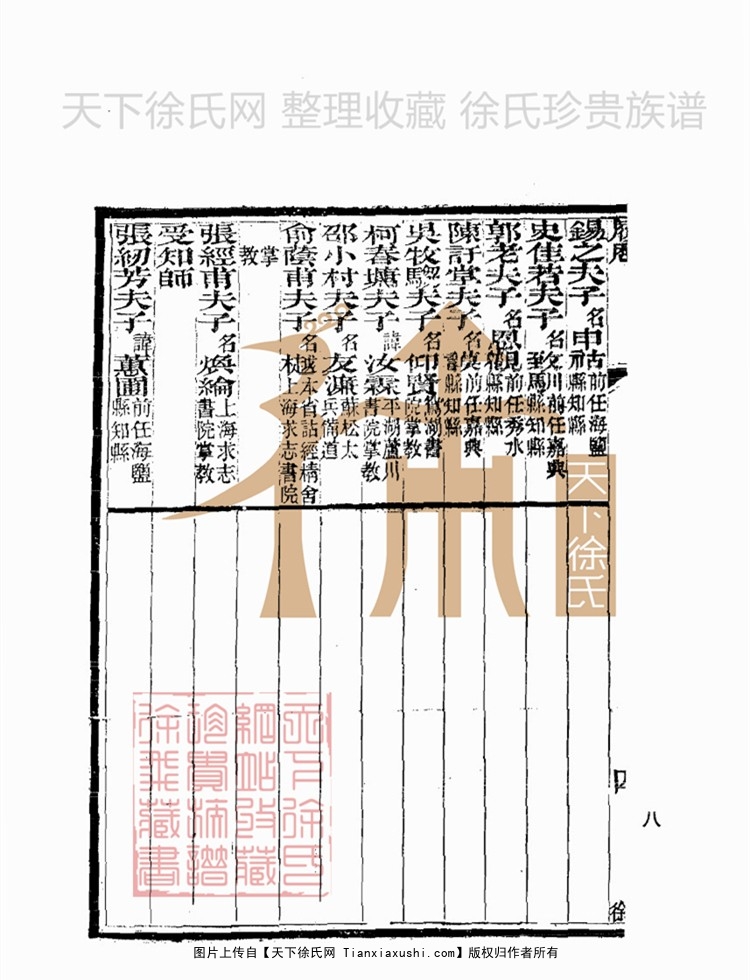 天下徐氏网 整理收藏 徐氏珍贵族谱
錫之夫子 名申 前任海鹽縣知縣
史佳若夫子 名 前任嘉興縣知縣
郭老夫子 名恩觀 前任秀水縣知縣
陳訏堂夫子 名 前任嘉興縣知縣
吳牧騶夫子 名仰賢 鴛湖書院掌教
柯春塘夫子 諱汝霖 平湖蘆川書院掌教
邵小村夫子 名友濂 蘇松太兵備道
俞蔭甫夫子 名樾 本省詁經精舍上海求志書院
掌教
張經甫夫子 名煥綸 上海求志書院掌教
受知師
張紉芳夫子 諱蕙圃 前任海鹽縣知縣
八
天下徐氏
天下徐氏網站收藏珍貴族譜徐氏藏書
图片上传自【天下徐氏网 Tianxiaxushi.com】版权归作者所有